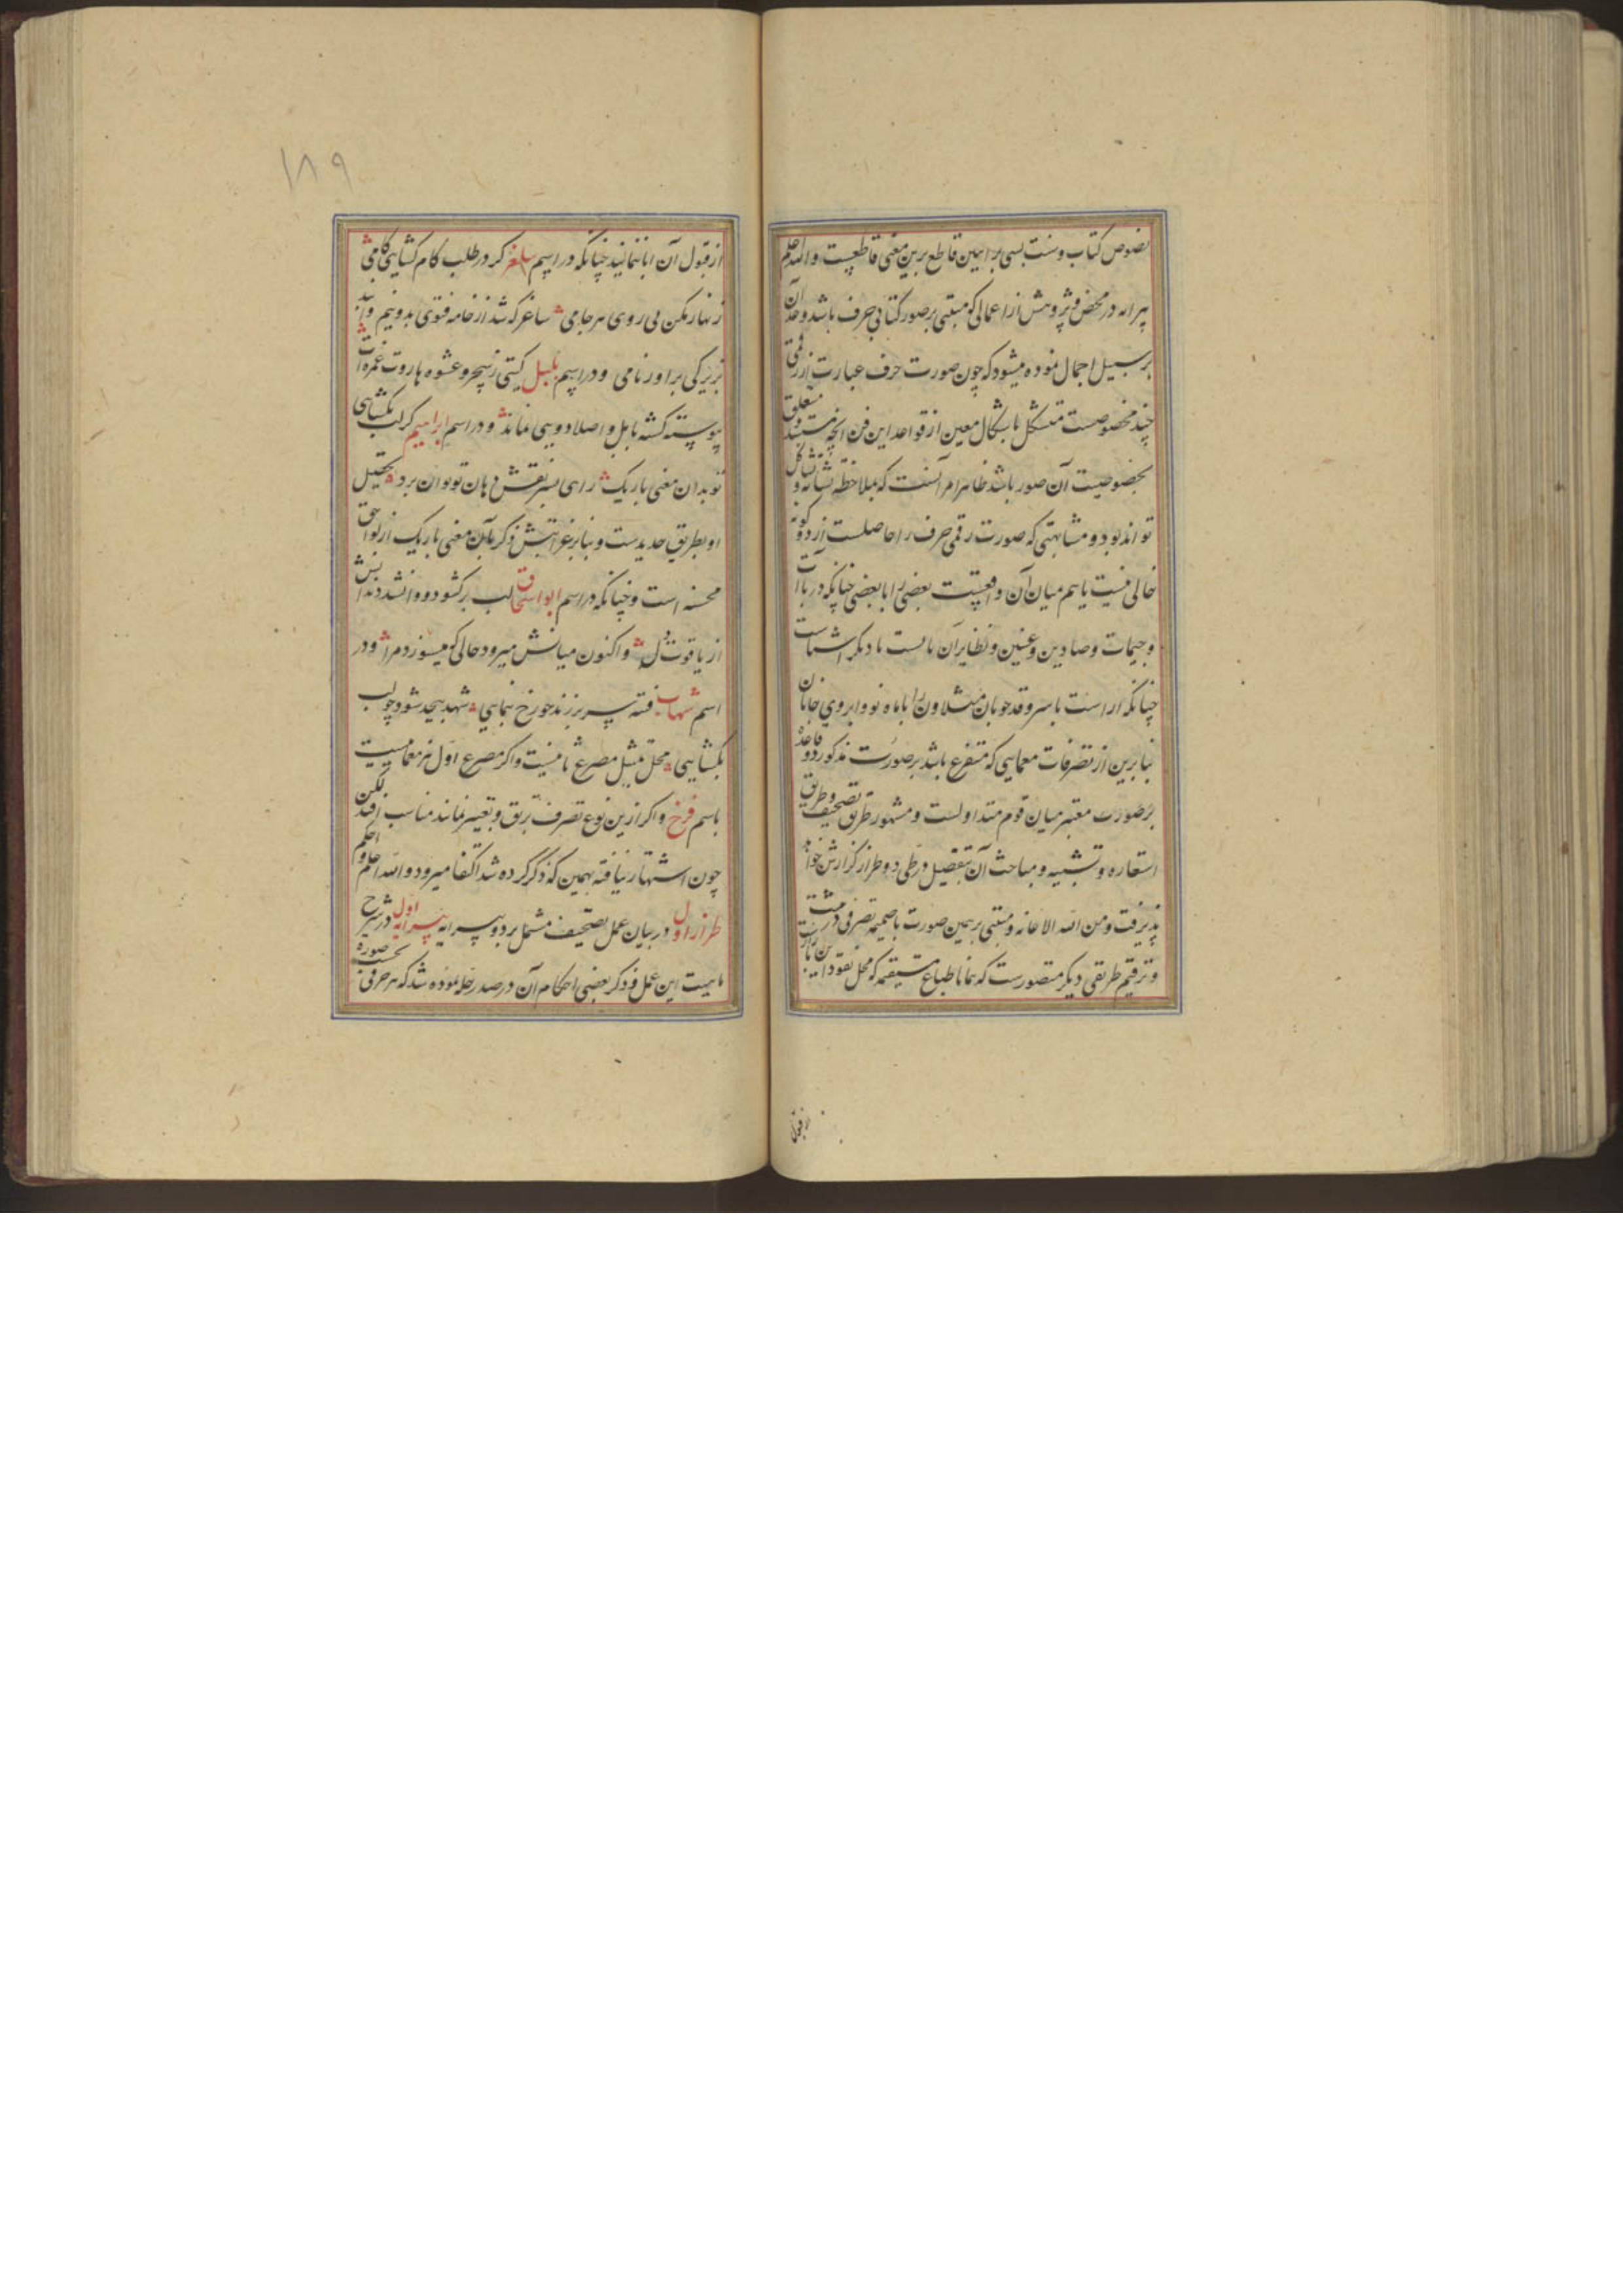 نصوص کتاب و سنت بسی براهین قاطع برین معنی قاطعیست والله اعلم
پیرایه در محض و پژوهش از اعمالی که مبتنی بر صور کتابی حرف باشد و حد آن
بر سبیل اجمال نموده میشود که چون صورت حرف عبارت از رقمی
چند مخصوصست متشکل باشکال معین از قواعد این فن آنچه متعلق
بخصوصیت آن صور باشد ظاهرا مرآنست که ملاحظه
تواند بود و مشابهتی که صورت رقمی حرف را حاصلست از دو گونه
خالی نیست یا هم میان آن واقعیست بعضی را با بعضی چنانکه در باآت
و جیمات و صادین و عینین و نظایر آن یا هست با دیگر اشیاست
چنانکه ا راست با سرو قد خوبان مثلا و ن را با ماه نو و ابروی جانان
بنابرین از تصرفات معمایی که متفرع باشد بر صورت مذکور دو قاعده
بر صورت معتبر میان قوم متداولست و مشهور طریق تصحیف و طریق
استعاره و تشبیه و مباحث آن بتفصیل در طی دو طراز گزارش خواهد
پذیرفت و من الله الاعانه و مبتنی بر همین صورت با ضمیمه تصرفی در
و ترقیم طریقی دیگر متصورست که همانا طباع مستقیمه که محل نقود
از قبول
۱۸۹
از قبول آن ابا ننمایند چنانکه در اسم ساغر گر در طلب کام گشایی کامی
زنهار مکن بی روی سر جامی ساغر که شد از خامه فتوی بدو نیم
بزیرکی براور نامی و در اسم بلبل گیتی ز سحر و عشوه هاروت غمزه‌ات
پیوسته گشته بابل و اصلا دویی نماند و در اسم ابراهیم گر لب بگشایی
تو بدان معنی باریک راهی بسر نقش دهان تو توان برد تحتیل
او بطریق جدیدست و بنابر غرابتش ذکر آن معنی باریک از لواحق
محسنه است و چنانکه در اسم ابواسحاق لب برگشود و وا نشد دندانش
از یاقوت لب و اکنون میانش میرود حالی که میسوزد مرا و در
اسم شهاب فتنه سر برزند چو رخ بنمایی شهد بیحد شود چو لب
بگشایی محل تمثیل مصرع ثانیست و اگر مصرع اول نیز معماییست
باسم فرخ و اگر ازین نوع تصرف برق و تعبیر نمایند مناسب افتد لکن
چون اشتهار نیافته بهمین که ذکر کرده شد اکتفا میرود والله اعلم و احکم
طراز اول در بیان عمل تصحیف مشتمل بر دو پیرایه پیرایه اول در شرح
ماهیت این عمل و ذکر بعضی احکام آن در صدر حله نموده شد که هر حرفی بحسب صوره